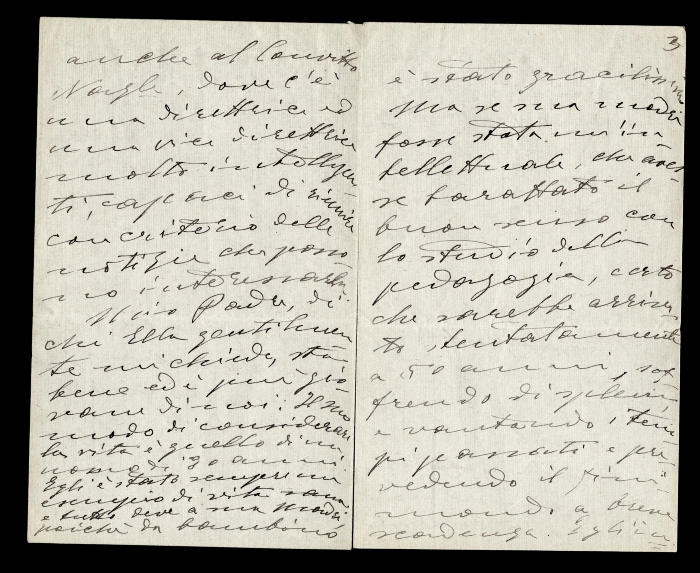 anche al Convitto
Nazle, dove c'è
una direttrice ed
una vice direttrice
molto intelligen
ti, capaci di riunire
con criterio delle
notizie che posso
no interessarla.
Mio Padre, di
chi Ella gentilmen
te mi chiede, sta
bene ed è più gio
vane di noi: Il suo
modo di considerare
la vita è quello di un
uomo di 30 anni.
Egli è stato sempre un
esempio di vita sana
e tutto deve a sua madre
poichè da bambino
3
è stato gracilissimo
Ma se sua madre
fosse stata un'in
tellettuale, che avesse
se barattato il
buon senso con
lo studio della
pedagogia, certo
che sarebbe arriva
to, stentatamente
a 50 anni, sof
frendo di spleen
e vantando tem
pi passati e pre
vedendo il fini
mondo a breve
scadenza. Egli in